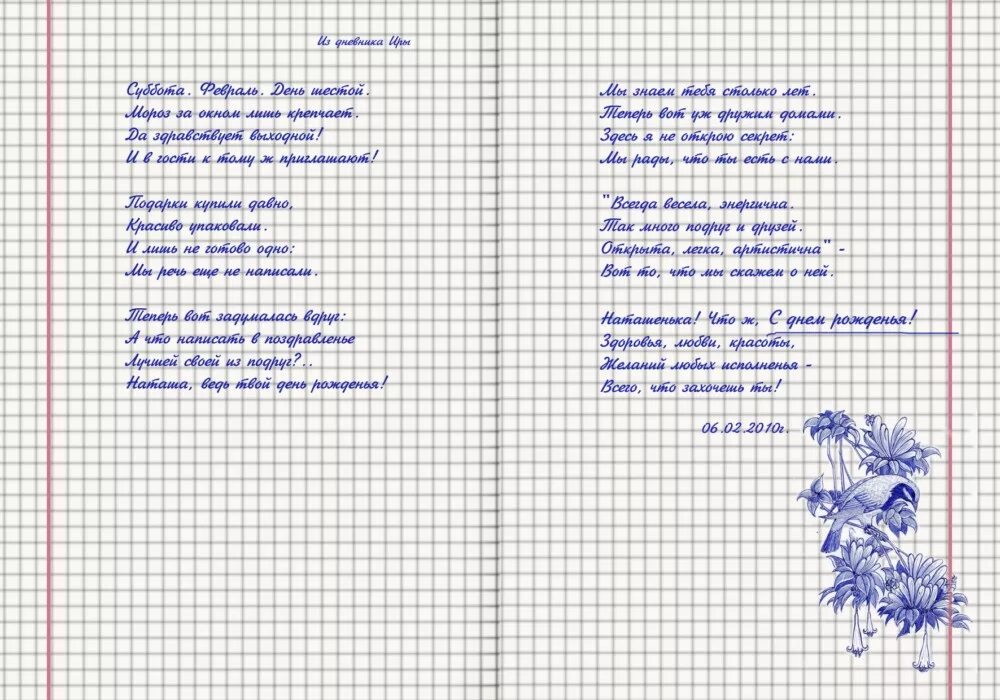 Из дневника Иры
Суббота. Февраль. День шестой.
Мороз за окном лишь крепчает.
Да здравствует выходной!
И в гости к тому ж приглашают!
Подарки купили давно,
Красиво упаковали.
И лишь не готово одно:
Мы речь еще не написали.
Теперь вот задумалась вдруг:
А что написать в поздравленье
Лучшей своей из подруг?..
Наташа, ведь твой день рожденья!
Мы знаем тебя столько лет.
Теперь вот уж дружим домами.
Здесь я не открою секрет:
Мы рады, что ты есть с нами.
"Всегда весела, энергична.
Так много подруг и друзей.
Открыта, легка, артистична" -
Вот то, что мы скажем о ней.
Наташенька! Что ж, С днем рожденья!
Здоровья, любви, красоты,
Желаний любых исполненья -
Всего, что захочешь ты!
06.02.2010г.